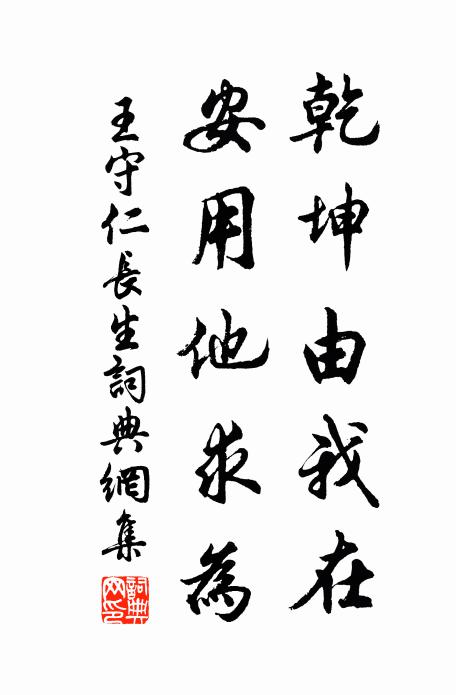 乾坤由我在
安用他求為
王守仁長生詞典網集
詞典
网印